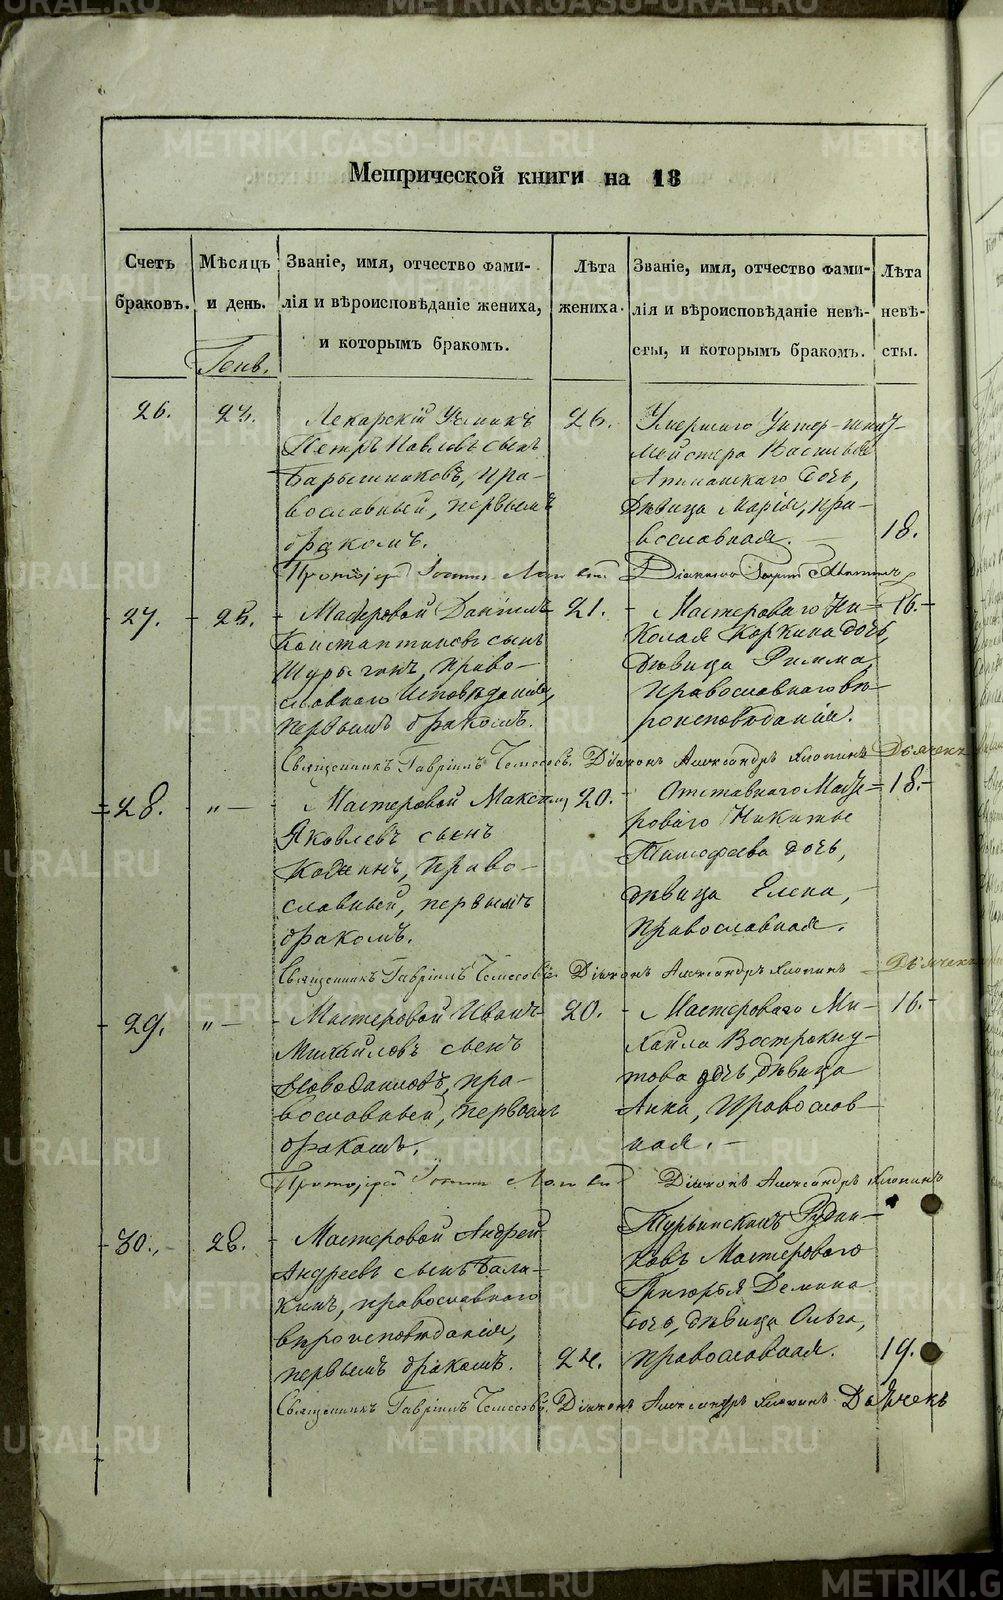 Метрической книги на 18
Счетъ браковъ.
Мѣсяцъ и день.
Званіе, имя, отчество фами-
лія и вѣроисповѣданіе жениха,
и которымъ бракомъ.
Лѣта жениха.
Званіе, имя, отчество фами-
лія и вѣроисповѣданіе невѣ-
сты, и которымъ бракомъ.
Лѣта невѣ-
сты.
Генв.
26.
23.
Лекарскій Ученикъ
Петръ Павловъ сынъ
Барышниковъ, пра-
вославный, первымъ
бракомъ.
26.
Умершаго Унтер-
мейстера Василья
дочь,
дѣвица Марія, пра-
вославная.
18.
Протоіерей Іоаннъ
Діаконъ
27.
25.
Мастеровой Даніилъ
Константиновъ сынъ
Шурыгинъ, право-
славнаго Исповѣданія,
первымъ бракомъ.
21.
Мастероваго Ни-
колая Коркина дочь,
дѣвица Римма,
православнаго вѣ-
роисповѣданія.
16.
Священникъ Гавріилъ Діаконъ Александръ Хлопинъ Дьячекъ
28.
„ —
Мастеровой Максимъ
Яковлевъ сынъ
право-
славный, первымъ
бракомъ.
20.
Отставнаго Масте-
роваго Никиты
Тимофеева дочь,
дѣвица Елена,
православная.
18.
Священникъ Гавріилъ Діаконъ Александръ Хлопинъ Дьячекъ
29.
„ —
Мастеровой Иванъ
Михайловъ сынъ
пра-
вославный, первымъ
бракомъ.
20.
Мастероваго Ми-
хайла Вострокну-
това дочь, дѣвица
Анна, православ-
ная.
16.
Протоіерей Іоаннъ
Діаконъ Александръ Хлопинъ
30.
28.
Мастеровой Андрей
Андреевъ сынъ Бала-
кинъ, православнаго
вѣроисповѣданія,
первымъ бракомъ.
24.
Турьинскихъ Рудни-
ковъ Мастероваго
Григорья Демина
дочь, дѣвица Ольга,
православная.
19.
Священникъ Гавріилъ Діаконъ Александръ Хлопинъ Дьячекъ
METRIKI.GASO-URAL.RU